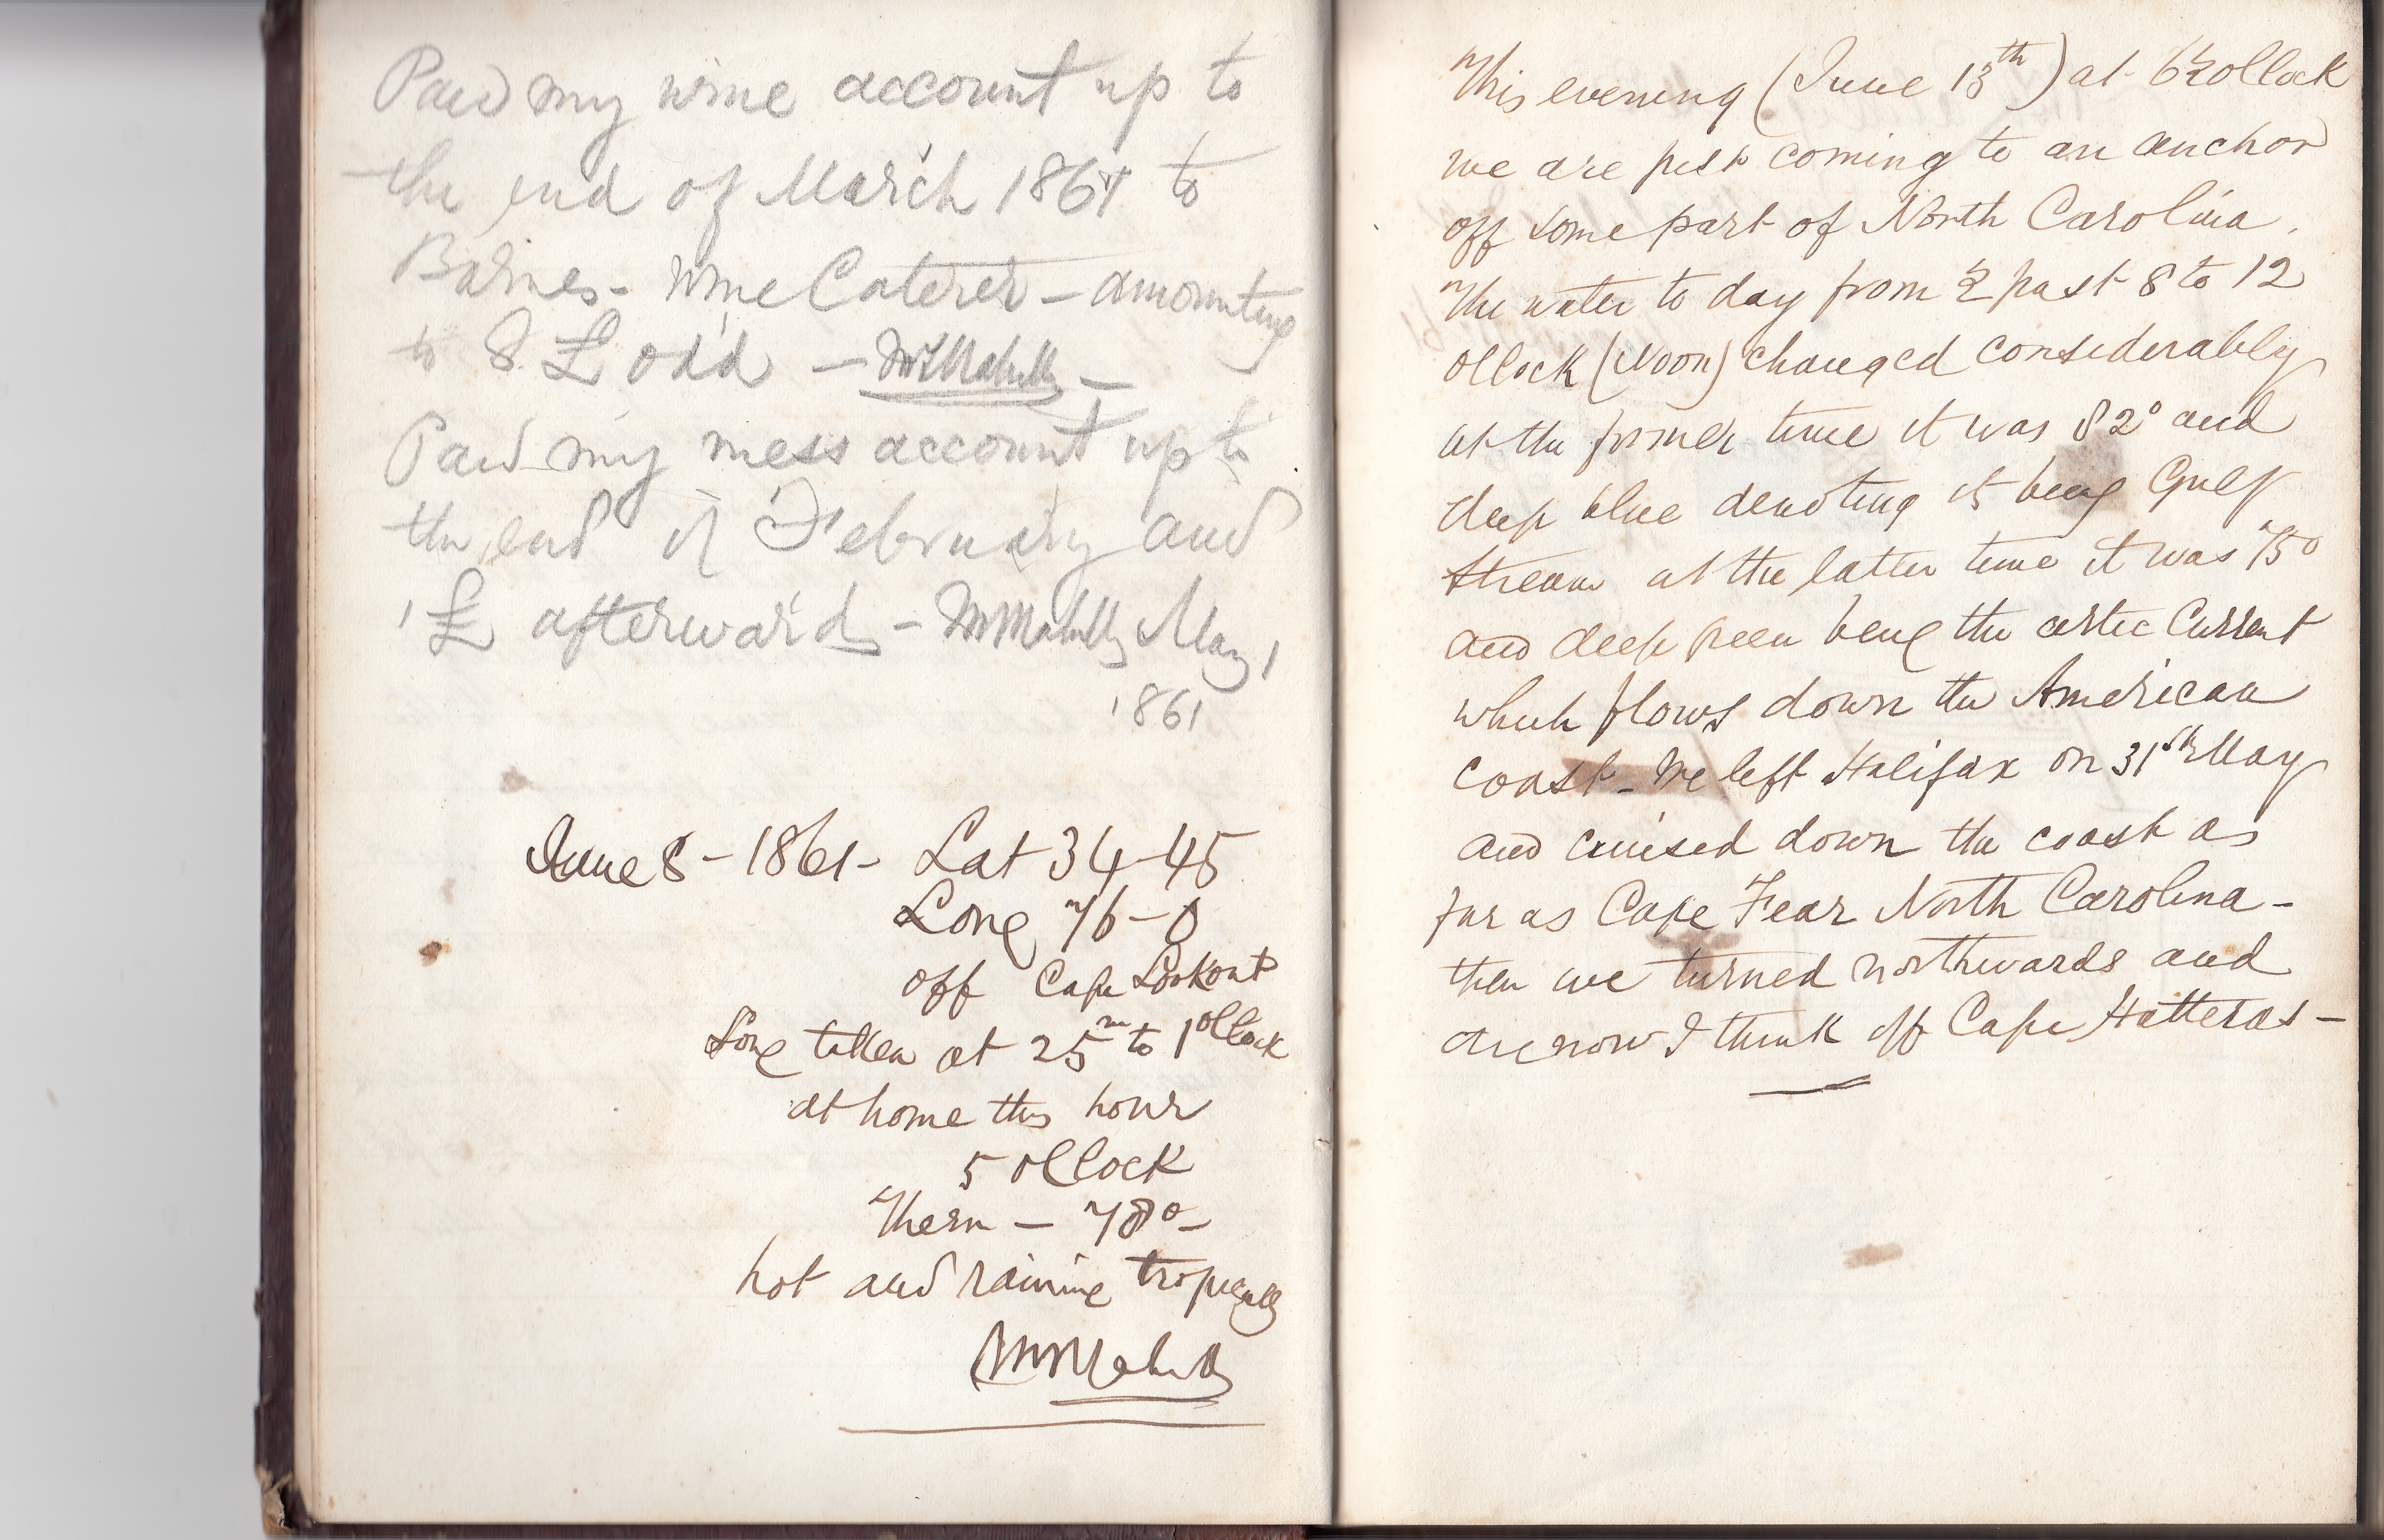 Paid my wine account up to
the end of March 1861 to
Barnes - Wine Caterer - amounting
to 8 £ odd -
Paid my mess account up to
the end of February and
1 £ afterwards - May 1
1861
June 8 - 1861 - Lat 34-45
Long 76-0
off Cape Lookout
Long taken at 25m to 1 oClock
at home this hour
5 oClock
Therm - 78° -
hot and raining tropically
This evening (June 13th) at 6½ oClock
we are just coming to an anchor
off some part of North Carolina.
The water to day from ½ past 8 to 12
oClock (Noon) changed considerably
at the former time it was 82° and
deep blue denoting its being Gulf
Stream at the latter time it was 75°
and deep green being the artic Current
which flows down the American
coast - We left Halifax on 31st May
and cruised down the coast as
far as Cape Fear North Carolina -
then we turned northwards and
are now I think off Cape Hatteras -